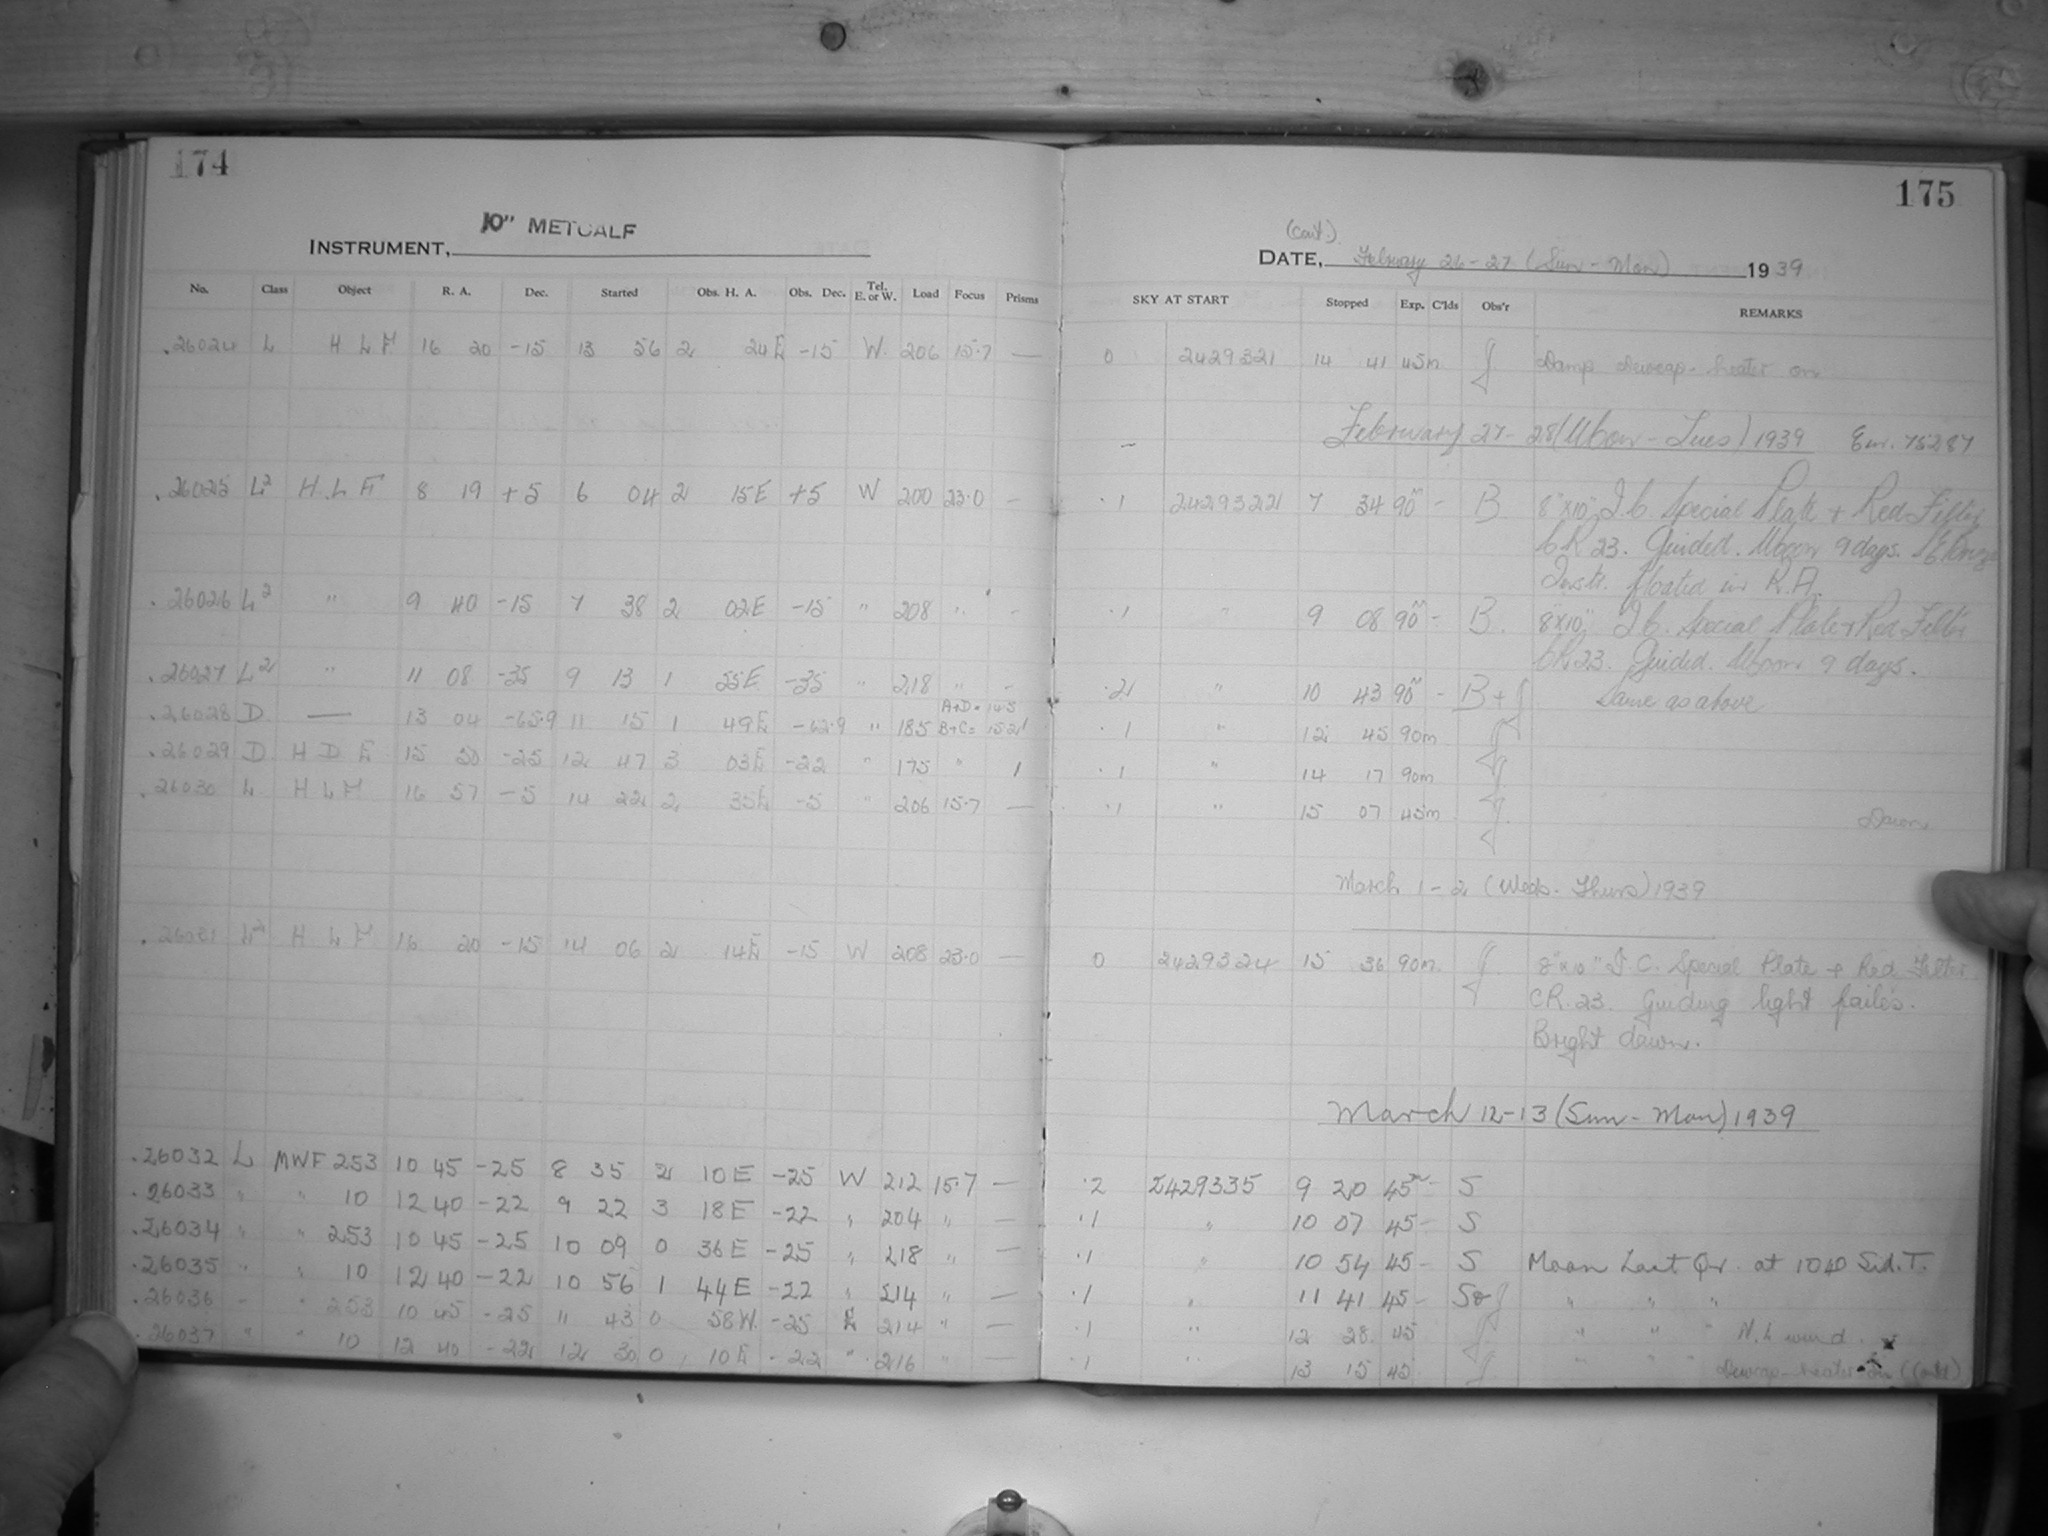 174
175
10" METCALF
INSTRUMENT,
(Cont.)
DATE, February 26-27 (Sun - Mon) 1939
No. Class Object R. A. Dec. Started Obs. H. A. Obs. Dec. Tel. E. or W. Load Focus Prisms SKY AT START Stopped Exp. C'lds Obs'r REMARKS
.26024 L H L H 16 20 -15 13 56 2 24E -15 W. 206 15.7 — 0 2429321 14 41 45m Damp Dewcap-heater on
February 27-28 (Mon - Tues) 1939
.26025 L² H L H 8 19 +5 6 04 2 15E +5 W 200 23.0 - .1 2429322 7 34 90m - B 8"x10" I.C. Special Plate + Red Filter
CR 23. Guided. Moon 9 days.
Instr. floated in R.A.
.26026 L² " 9 40 -15 7 38 2 02E -15 " 208 " - .1 " 9 08 90m - B. 8"x10" I.C. Special Plate + Red Filter
CR 23. Guided. Moon 9 days.
.26027 L² " 11 08 -35 9 13 1 55E -35 " 218 " - .2 " 10 43 90m - B + J Same as above
.26028 D — 13 04 -65.9 11 15 1 49E -62.9 " 185 A+D= 14.5 B+C= 15.21 .1 " 12 45 90m
.26029 D H D E 15 50 -25 12 47 3 03E -22 " 175 " 1 .1 " 14 17 90m
.26030 L H L H 16 57 -5 14 22 2 35E -5 " 206 15.7 — .1 " 15 07 45m Dawn
March 1-2 (Weds - Thurs) 1939
.26031 L² H L H 16 20 -15 14 06 2 14E -15 W 208 23.0 — 0 2429324 15 36 90m. 8"x10" I.C. Special Plate + Red Filter
CR.23. Guiding light failed.
Bright dawn.
March 12-13 (Sun - Mon) 1939
.26032 L MWF 253 10 45 -25 8 35 2 10E -25 W 212 15.7 — .2 2429335 9 20 45m - S
.26033 " " 10 12 40 -22 9 22 3 18E -22 " 204 " — .1 " 10 07 45 - S
.26034 " " 253 10 45 -25 10 09 0 36E -25 " 218 " — .1 " 10 54 45 - S Moon Last Qr. at 1040 Sid. T.
.26035 " " 10 12 40 -22 10 56 1 44E -22 " 214 " — .1 " 11 41 45 - S " " "
.26036 " " 253 10 45 -25 11 43 0 58W. -25 E 214 " — .1 " 12 28 45 " " " wind.
.26037 " " 10 12 40 -22 12 30 0 10E -22 " 216 " — .1 " 13 15 45 " " " Dewcap-heater on (Contd)